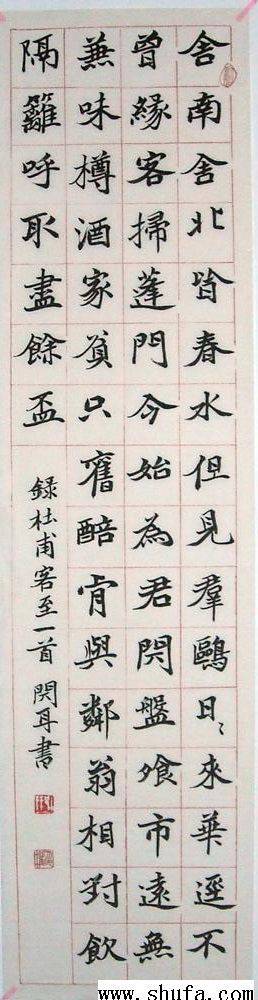 舍南舍北皆春水但見羣鷗日〻來華逕不
曾緣客掃蓬門今始為君開盤飧市遠無
兼味樽酒家貧只舊醅肯與鄰翁相對飲
隔籬呼取盡餘盃
錄杜甫客至一首 開耳書
www.shufa.com